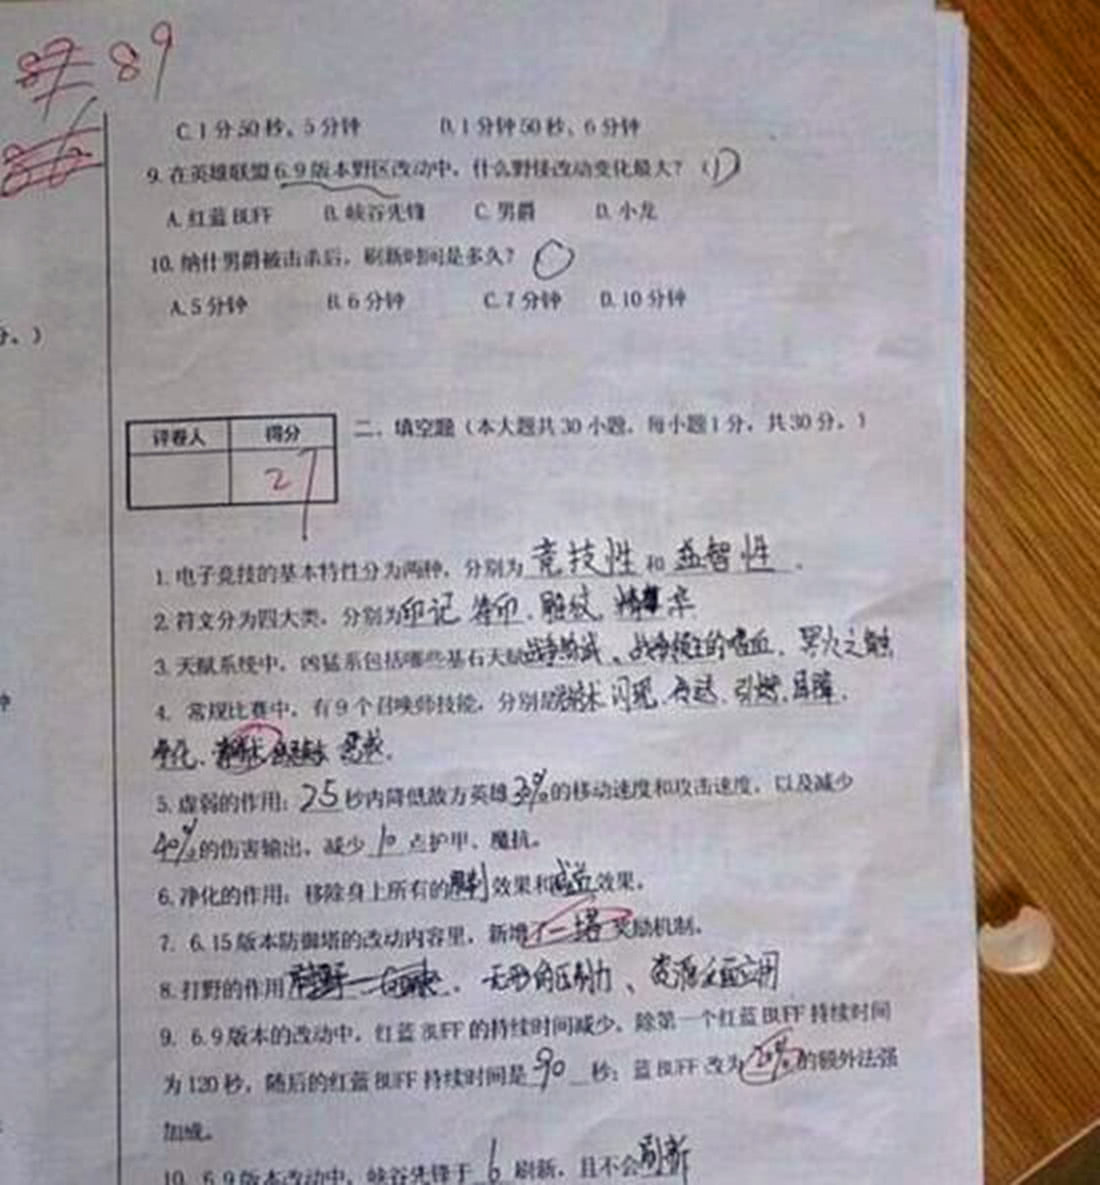 87 89
86
C. 1 分 50 秒、5 分钟 D. 1 分钟 50 秒、6 分钟
9. 在英雄联盟 6.9 版本野区改动中，什么野怪改动变化最大？（D）
A. 红蓝 BUFF B. 峡谷先锋 C. 男爵 D. 小龙
10. 纳什男爵被击杀后，刷新时间是多久？
A. 5 分钟 B. 6 分钟 C. 7 分钟 D. 10 分钟
分。）
评卷人 得分
27
二、填空题（本大题共 30 小题，每小题 1 分，共 30 分。）
1. 电子竞技的基本特性分为两种，分别为 竞技性 和 益智性 。
2. 符文分为四大类，分别为印记、符印、雕纹、精华
3. 天赋系统中，凶猛系包括哪些基石天赋战争热诚、战争领主的嗜血、界火之触
4. 常规比赛中，有 9 个召唤师技能，分别是 闪现、传送、引燃、屏障、
净化、 惩戒.
5. 虚弱的作用：2.5 秒内降低敌方英雄 30% 的移动速度和攻击速度，以及减少
40% 的伤害输出，减少 10 点护甲、魔抗。
6. 净化的作用：移除身上所有的限制效果和减益效果。
7. 6.15 版本防御塔的改动内容里，新增 一塔 奖励机制。
8. 打野的作用 、无形的压制力、资源
9. 6.9 版本的改动中，红蓝 BUFF 的持续时间减少，除第一个红蓝 BUFF 持续时间
为 120 秒，随后的红蓝 BUFF 持续时间是 90 秒；蓝 BUFF 改为 的额外法强
加成。
10. 6.9 版本改动中，峡谷先锋于 6 刷新，且不会刷新